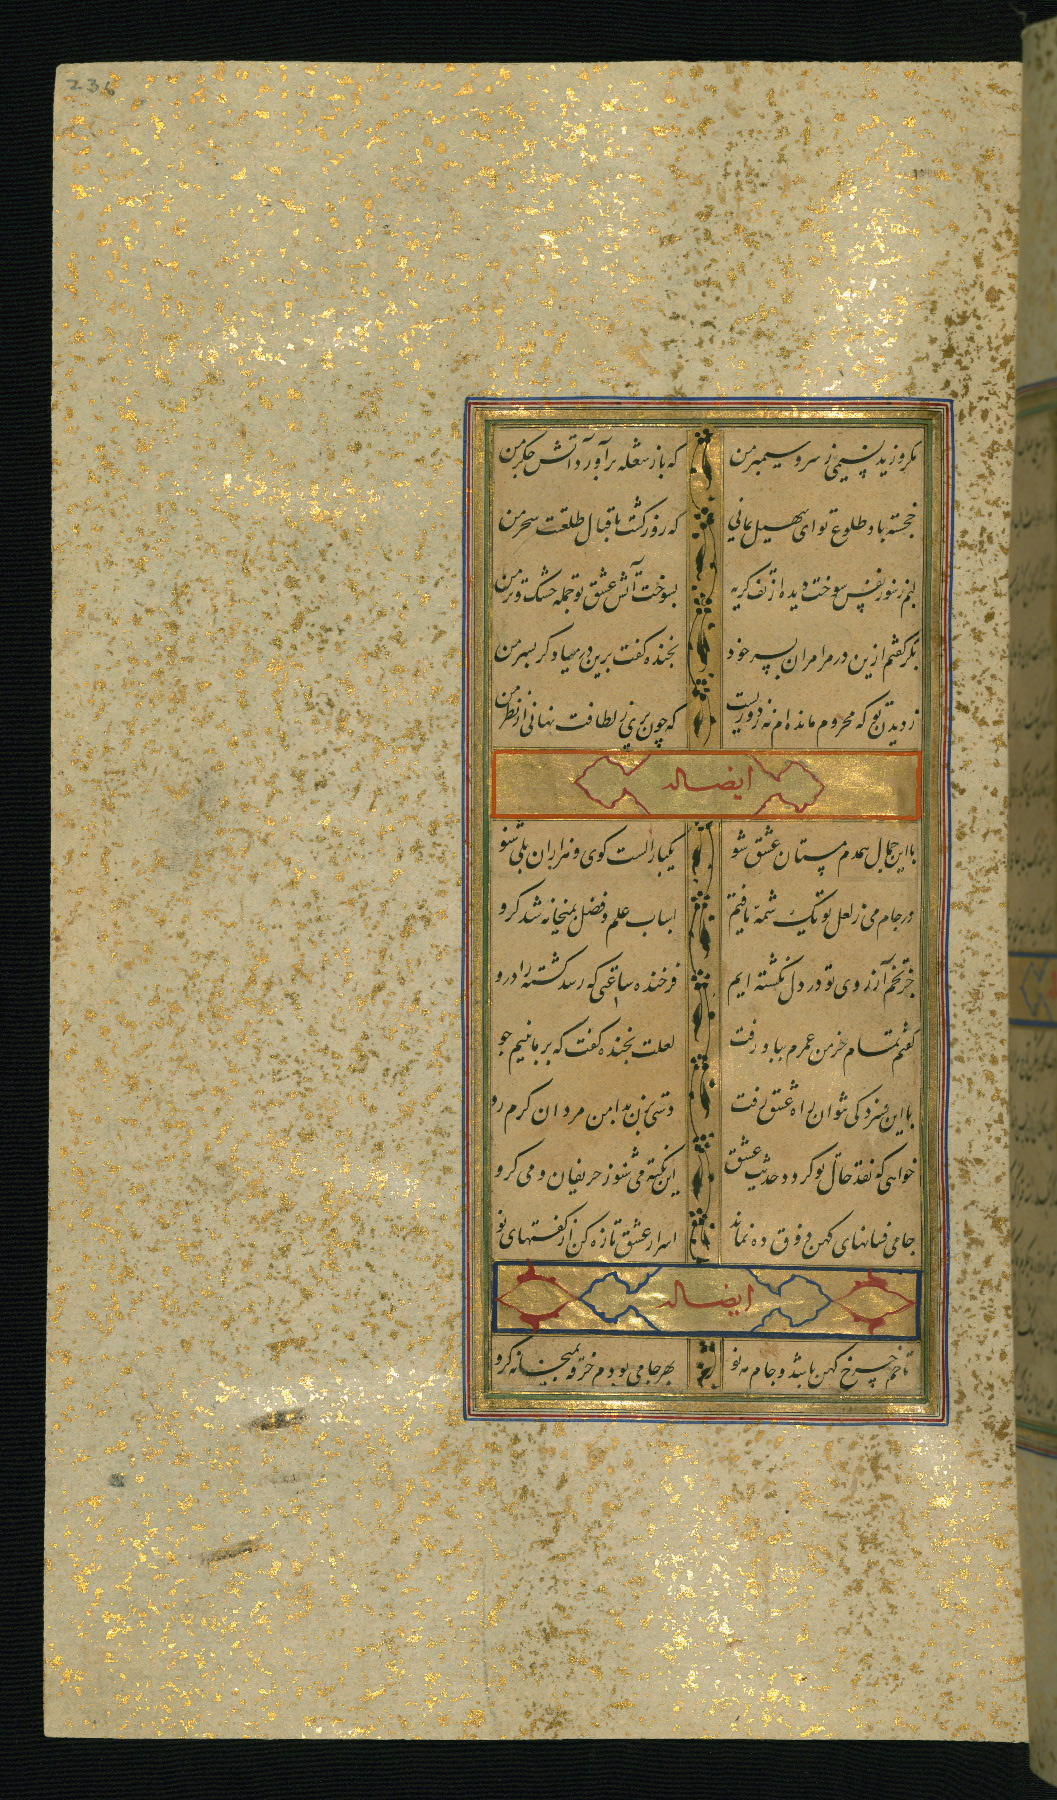 236
مکر وزید نسیمی ز سرو سیمبر من
که باز شعله برآورد آتش جگر من
خجسته باد طلوع تو ای سهیل یمانی
که روز گشت باقبال طلعتت سحر من
لبم ز سوز نفس سوخت دیده از تف گریه
بسوخت آتش عشق تو جمله خشک و تر من
مکر گفتم ازین در مرا مران بسر خود
بخنده گفت برین در میا دگر بسر من
ز دیدن تو که محروم مانده‌ام نه ز دوریست
که چون پری ز لطافت نهانی از نظر من
ایضاله
با این جمال همدم مستان عشق شو
یکبار الست گوی و هزاران بلی شنو
در جام می ز لعل تو یک شمه یافتیم
اسباب علم و فضل بمیخانه شد گرو
جز تخم آرزوی تو در دل نکشته ایم
فرخنده ساعتی که رسد کشته را درو
گفتم تمام خرمن عمرم بباد رفت
لعلت بخنده گفت که بر ما به نیم جو
با این خرد کی توان راه عشق رفت
دستی بزن بدامن مردان گرم رو
خواهی که نقد حال تو گردد حدیث عشق
این نکته می شنو ز حریفان و می گرو
جامی فسانهای کهن ذوق ده نماند
اسرار عشق تازه کن از گفتهای نو
ایضاله
تا خم چرخ کهن باشد و جام مه نو
بهر جامی بودم خرقه بمیخانه گرو